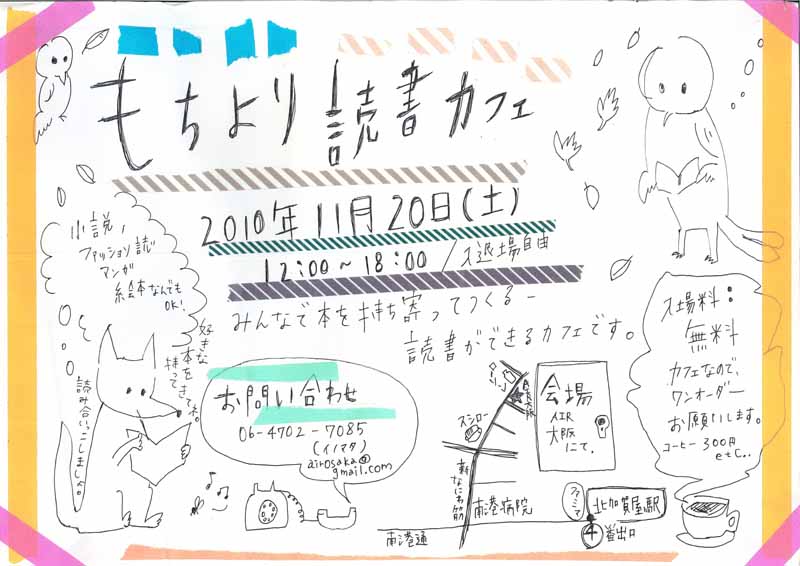 もちより読書カフェ
2010年11月20日(土)
12:00~18:00/入退場自由
みんなで本を持ち寄ってつくる
読書ができるカフェです。
小説、
ファッション誌
マンガ
絵本なんでも
OK!
好きな
本を
持って
きてね。
読み合いっこしましょ。
お問い合わせ
06-4702-7085
(イノマタ)
airosaka@
gmail.com
会場
AIR
大阪
にて。
スシロー
AIR大阪
新なにわ筋
南港病院
南港通
ファミマ
北加賀屋駅
4番出口
入場料:
無料
カフェなので、
ワンオーダー
お願いします。
コーヒー300円
etc..